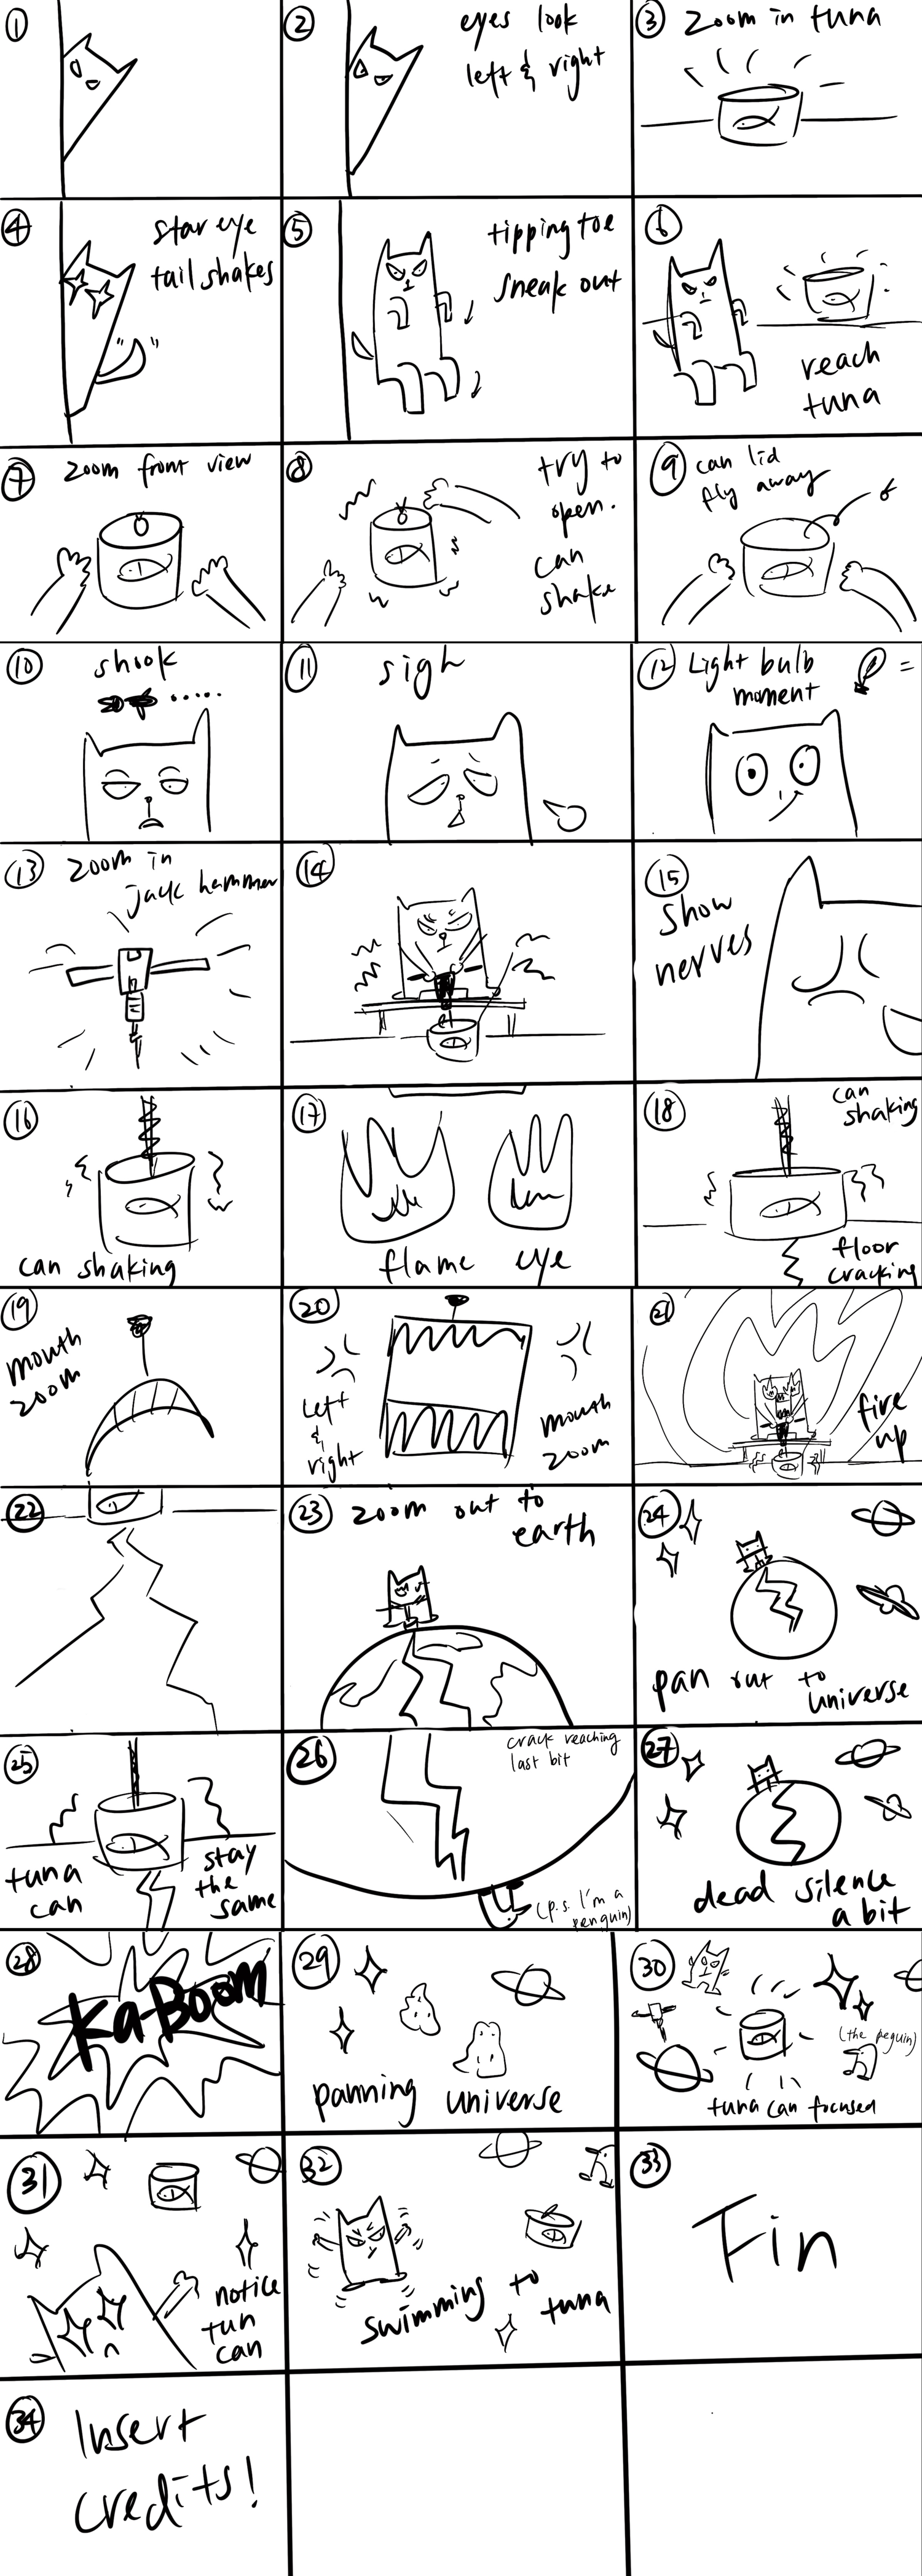 1
2
eyes look
left & right
3
Zoom in tuna
4
star eye
tail shakes
5
tipping toe
sneak out
6
reach
tuna
7
Zoom front view
8
try to
open.
can
shake
9
can lid
fly away
10
shook
.....
11
sigh
12
Light bulb
moment
13
Zoom in
jack hammer
14
15
Show
nerves
16
can shaking
17
flame eye
18
can
shaking
floor
cracking
19
mouth
zoom
20
left
&
right
mouth
zoom
21
fire
up
22
23
Zoom out to
earth
24
pan out to
universe
25
tuna
can
stay
the
same
26
crack reaching
last bit
(p.s. I'm a
penguin)
27
dead silence
a bit
28
KaBoom
29
panning universe
30
(the peguin)
tuna can focused
31
notice
tun
can
32
swimming to
tuna
33
Fin
34
Insert
credits!